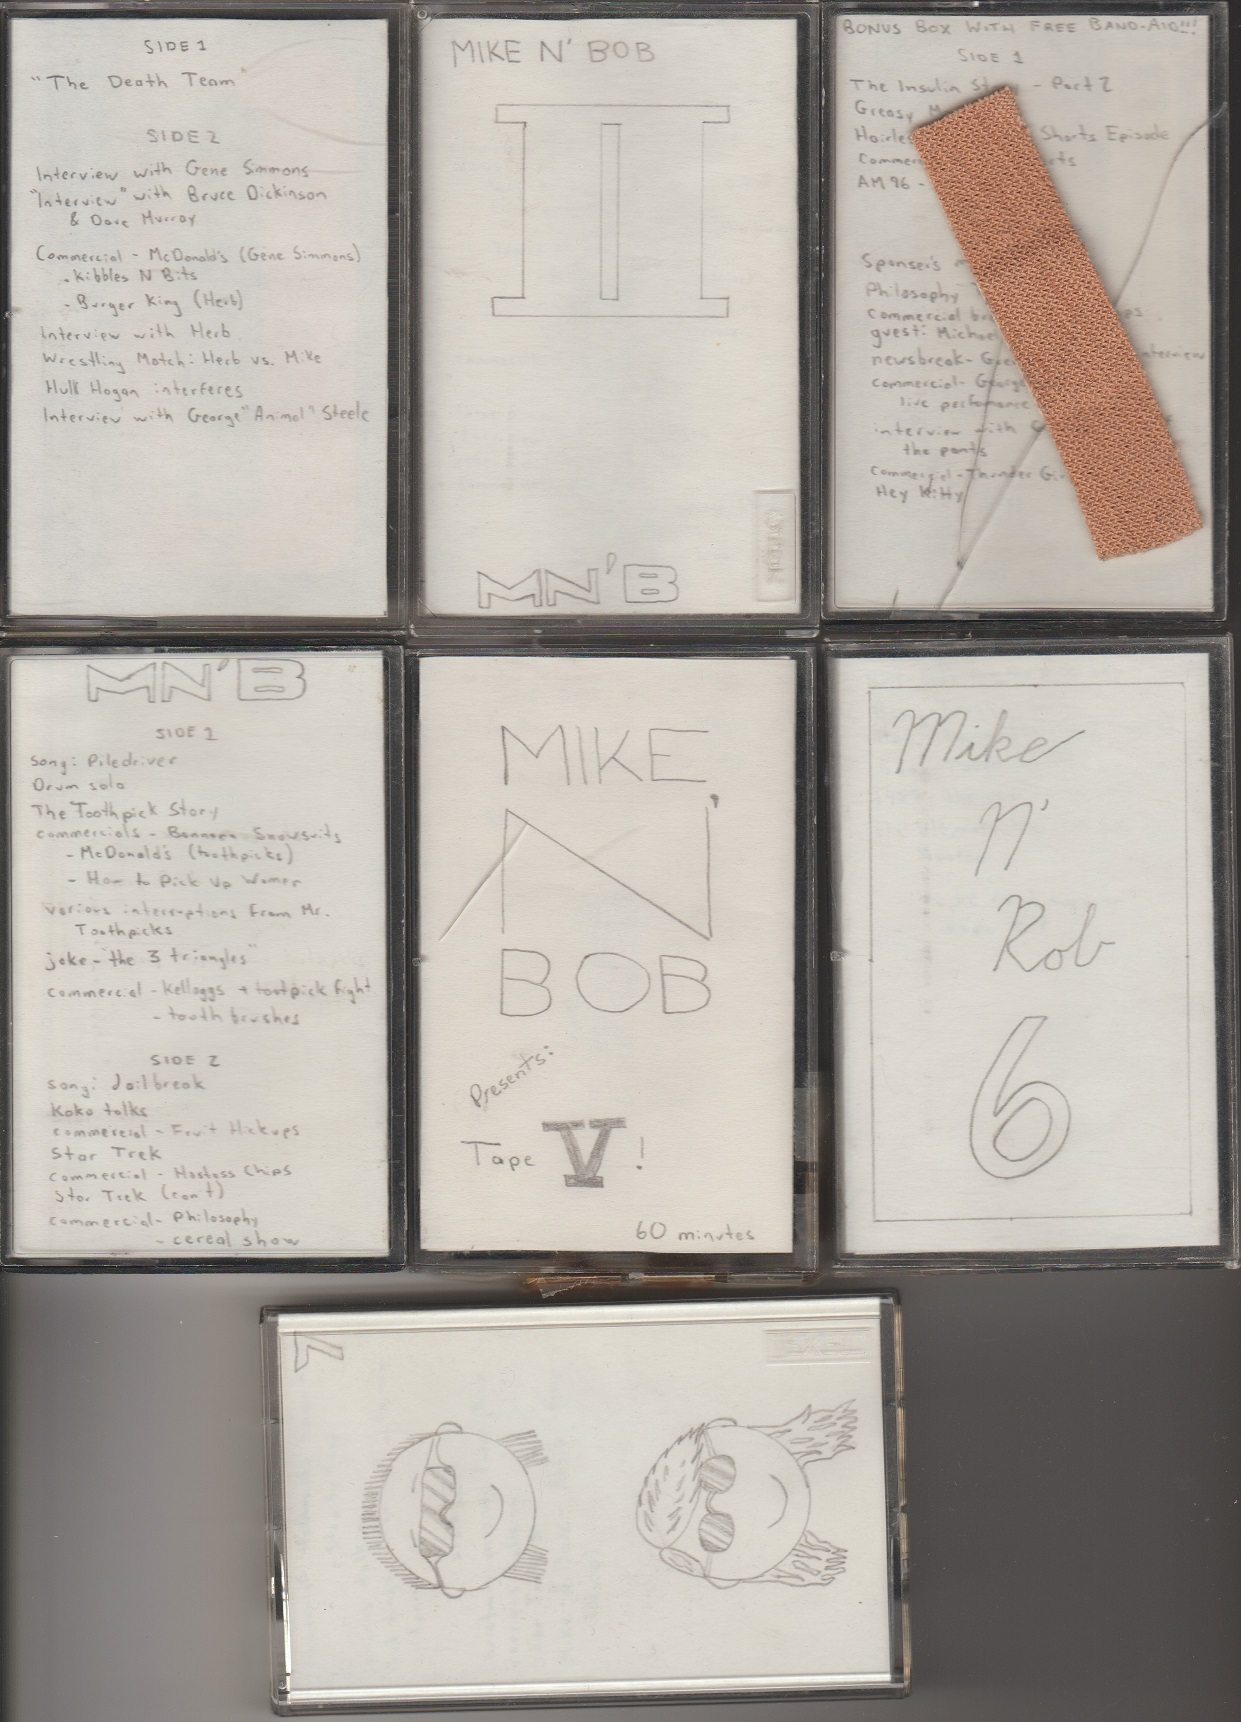 SIDE 1
"The Death Team"
SIDE 2
Interview with Gene Simmons
"Interview" with Bruce Dickinson
& Dave Murray
Commercial - McDonald's (Gene Simmons)
- Kibbles N Bits
- Burger King (Herb)
Interview with Herb
Wrestling Match: Herb vs. Mike
Hulk Hogan interferes
Interview with George "Animal" Steele
MIKE N' BOB
II
MN'B
BONUS BOX WITH FREE BAND-AID!!!
SIDE 1
The Insulin - Part 2
Greasy
Shorts Episode
AM 96 -
Sponser's
Philosophy
Commercial
guest:
newsbreak- interview
commercial-
live perfomance
interview with
the pants
Commercial - Thunder
Hey Kitty
MN'B
SIDE 1
song: Piledriver
Drum solo
The Toothpick Story
commercials - Snowsuits
- McDonald's (toothpicks)
- How to Pick Up Women
various interruptions from Mr.
Toothpicks
joke - "the 3 triangles"
commercial - Kelloggs + tootpick fight
- tooth brushes
SIDE 2
song: Jailbreak
Koko talks
commercial - Fruit Hickups
Star Trek
commercial - Hostess Chips
Star Trek (con't)
commercial - Philosophy
- cereal show
MIKE
N'
BOB
Presents:
Tape V!
60 minutes
Mike
N'
Rob
6
7